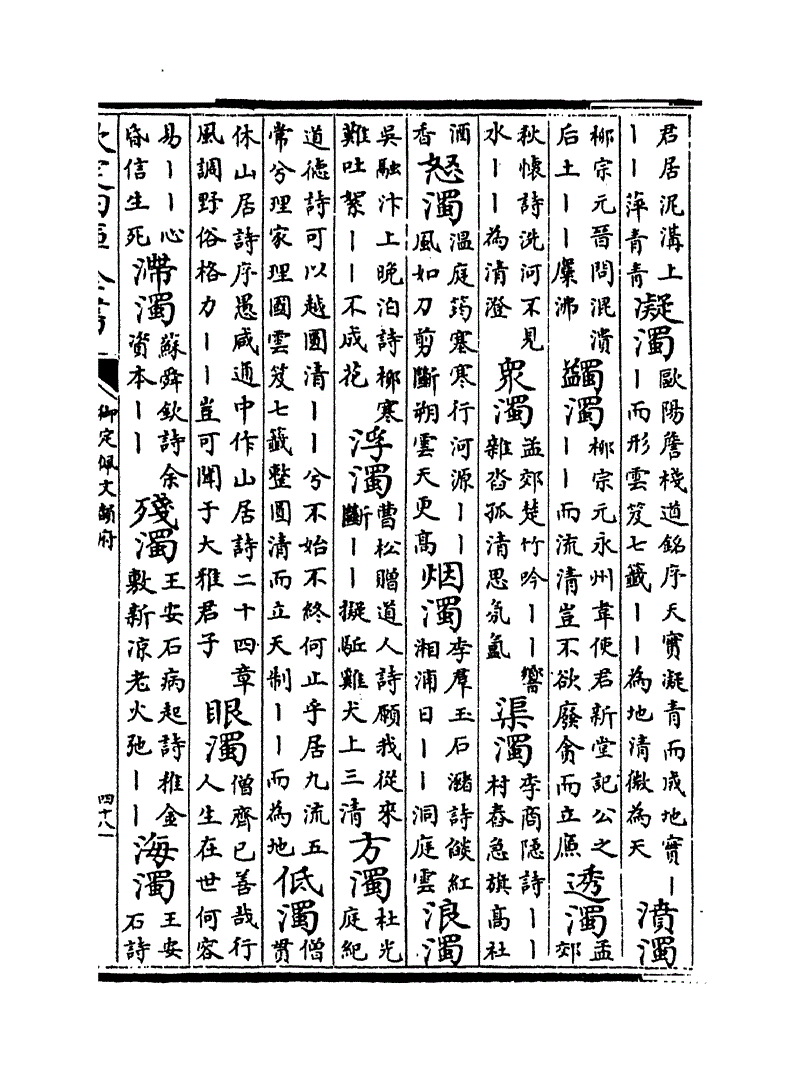 君居泥溝上丨丨萍青青凝濁歐陽詹棧道銘序天寶凝青而成地實丨丨而形雲笈七籤丨丨為地清微為天濆濁
柳宗元晉問混潰后土丨丨麋沸蠲濁柳宗元永州韋使君新堂記公之丨丨而流清豈不欲廢貪而立㢘透濁孟郊
秋懷詩洗河不見水丨丨為清澄衆濁孟郊楚竹吟丨丨響雜沓孤清思氛氲渠濁李商隠詩丨丨村舂急旗高社
酒香怒濁溫庭筠塞寒行河源丨丨風如刀剪斷朔雲天更髙烟濁李羣玉石瀦詩燄紅湘浦日丨丨洞庭雲浪濁
吳融汴上晚泊詩柳寒難吐絮丨丨不成花浮濁曹松贈道人詩願我從來斷丨丨擬駈雞犬上三清方濁杜光庭紀
道德詩可以越圜清丨丨兮不始不終何止乎居九流五常兮理家理國雲笈七籤整圓清而立天制丨丨而為地低濁僧貫
休山居詩序愚咸通中作山居詩二十四章風調野俗格力丨丨豈可聞于大雅君子眼濁僧齊已善哉行人生在世何容
易丨丨心昏信生死滯濁蘇舜欽詩余資本丨丨殘濁王安石病起詩稚金敷新凉老火弛丨丨海濁王安石詩
欽定四庫全書
御定佩文韻府
四十八